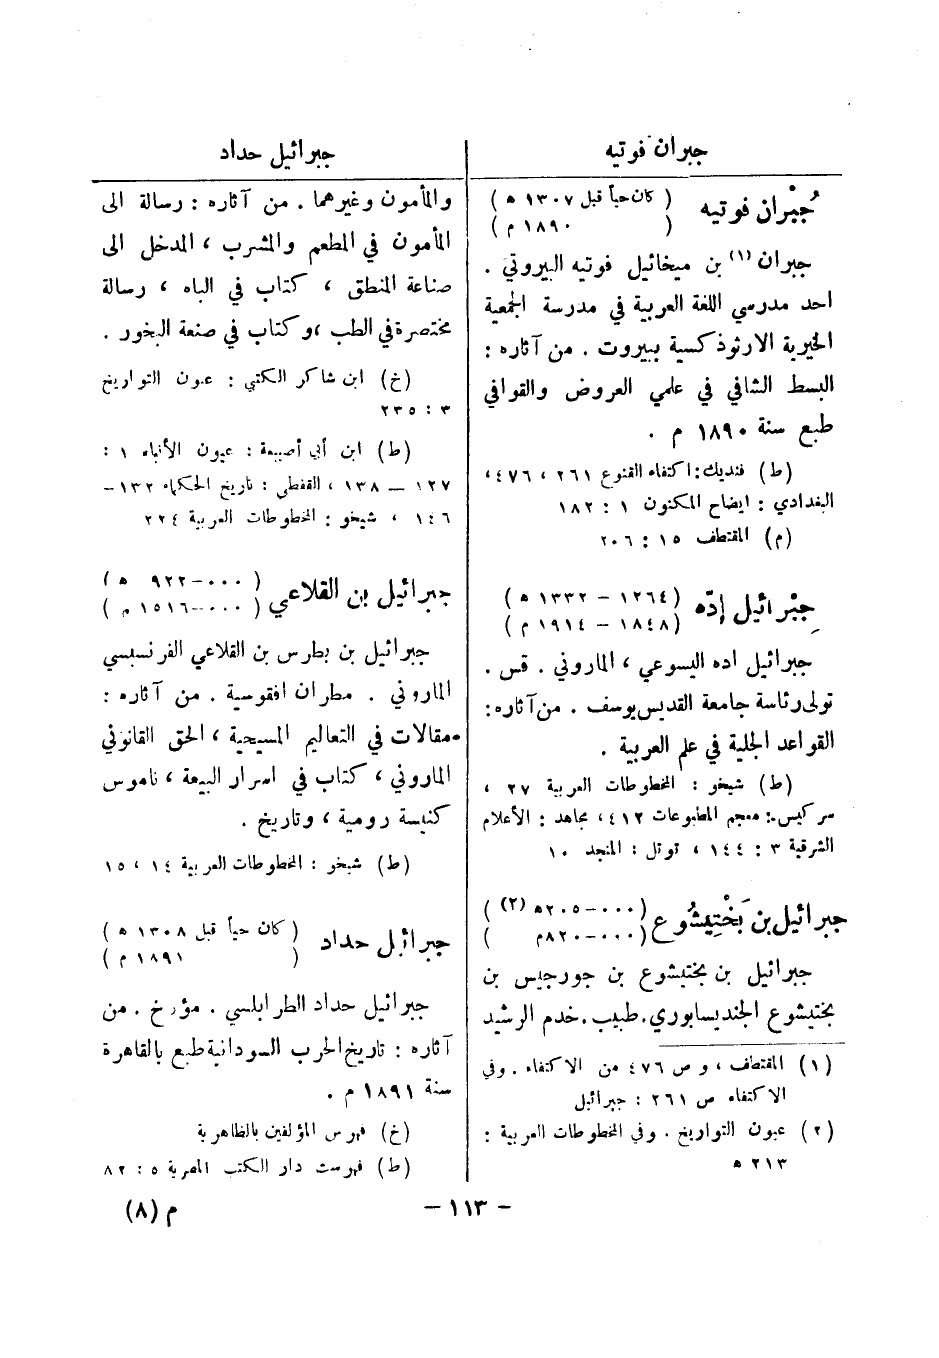 جبران فوتيه
جُبْران فوتيه ( كان حياً قبل ١٣٠٧ ه )
( ١٨٩٠ م )
جبران (١) بن ميخائيل فوتيه البيروتي .
احد مدرسي اللغة العربية في مدرسة الجمعية
الخيرية الارثوذكسية ببيروت . من آثاره :
البسط الشافي في علمي العروض والقوافي
طبع سنة ١٨٩٠ م .
(ط) فنديك: اكتفاء القنوع ٢٦١ ، ٤٧٦،
البغدادي : ايضاح المكنون ١ : ١٨٢
(م) المقتطف ١٥ : ٢٠٦
جِبْرائيل إدّه (١٢٦٤ – ١٣٣٢ ه )
(١٨٤٨ – ١٩١٤ م )
جبرائيل اده اليسوعي ، الماروني . قس .
تولى رئاسة جامعة القديس يوسف . من آثاره:
القواعد الجلية في علم العربية .
(ط) شيخو : المخطوطات العربية ٢٧ ،
سركيس: معجم المطبوعات ٤١٢، مجاهد : الأعلام
الشرقية ٣ : ١٤٤ ، توتل : المنجد ١٠
جبرائيل بن بَخْتِيشُوع (٠٠٠–٢٠٥ه (٢) )
(٠٠٠–٨٢٠م )
جبرائيل بن بختيشوع بن جورجيس بن
بختيشوع الجنديسابوري. طبيب. خدم الرشيد
(١) المقتطف ، و ص ٤٧٦ من الاكتفاء . وفي
الاكتفاء ص ٢٦١ : جبرائيل
(٢) عيون التواريخ . وفي المخطوطات العربية :
٢١٣ ه
جبرائيل حداد
والمأمون وغيرهما . من آثاره : رسالة الى
المأمون في المطعم والمشرب ، المدخل الى
صناعة المنطق ، كتاب في الباه ، رسالة
مختصرة في الطب ،وكتاب في صنعة البخور .
(خ) ابن شاكر الكتبي : عيون التواريخ
٣ : ٢٣٥
(ط) ابن أبي أصيبعة : عيون الأنباء ١ :
١٢٧ – ١٣٨ ، القفطي : تاريخ الحكماء ١٣٢–
١٤٦ ، شيخو : المخطوطات العربية ٢٢٤
جبرائيل بن القلاعي ( ٠٠٠–٩٢٢ ه )
( ٠٠٠–١٥١٦ م )
جبرائيل بن بطرس بن القلاعي الفرنسيسي
الماروني . مطران افقوسية . من آثاره :
مقالات في التعاليم المسيحية ، الحق القانوني
الماروني ، كتاب في اسرار البيعة ، ناموس
كنيسة رومية ، وتاريخ .
(ط) شيخو : المخطوطات العربية ١٤ ، ١٥
جبرائيل حداد ( كان حياً قبل ١٣٠٨ ه )
( ١٨٩١ م )
جبرائيل حداد الطرابلسي . مؤرخ . من
آثاره : تاريخ الحرب السودانية طبع بالقاهرة
سنة ١٨٩١ م .
(خ) فهرس المؤلفين بالظاهرية
(ط) فهرست دار الكتب المصرية ٥ : ٨٢
– ١١٣ –
م (٨)